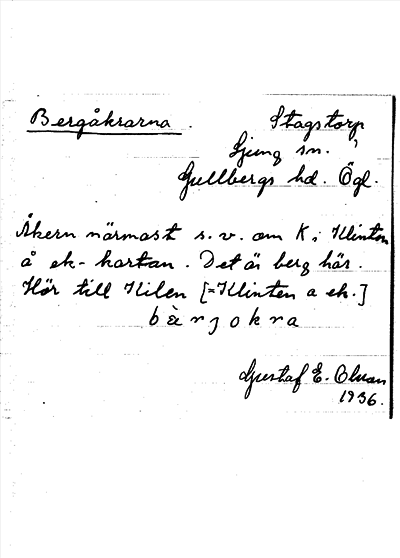 Bergåkrarna. Stagstorp,
Ljung sn.
Gullbergs hd. Ögl.
Åkern närmast s.v. om K i Klinten
å ek-kartan. Det är berg här.
Hör till Kilen [=Klinten a ek.]
bærjokra
Gustaf E. Olsson
1936.